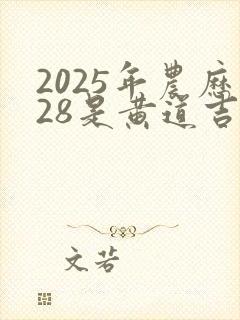 2025年農曆
28是黄道吉
文若